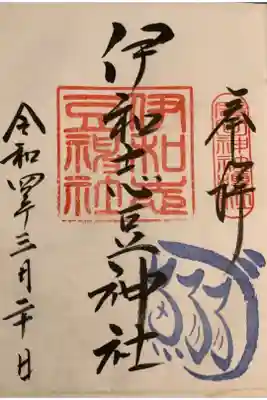 奉拝
伊和志豆神社
伊和志
豆神社
鰯
令和四年三月二十日